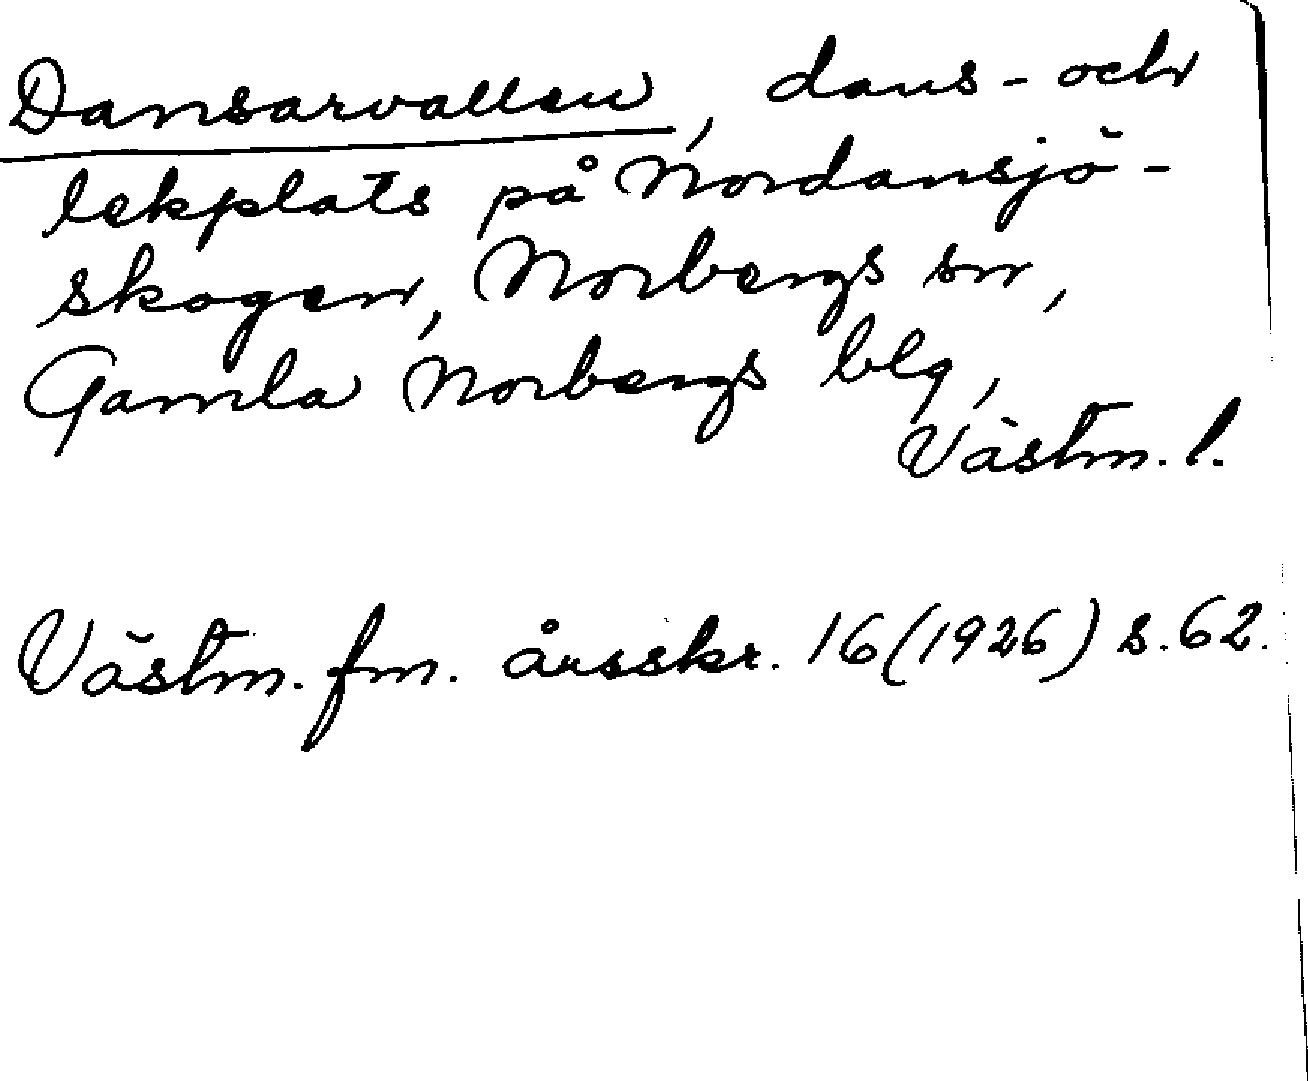 Dansarvallen, dans- och
lekplats på Nordansjö-
skogen, Norbergs sn,
Gamla Norbergs blg,
Västm. l.
Västm. fm. årsskr. 16 (1926) s. 62.